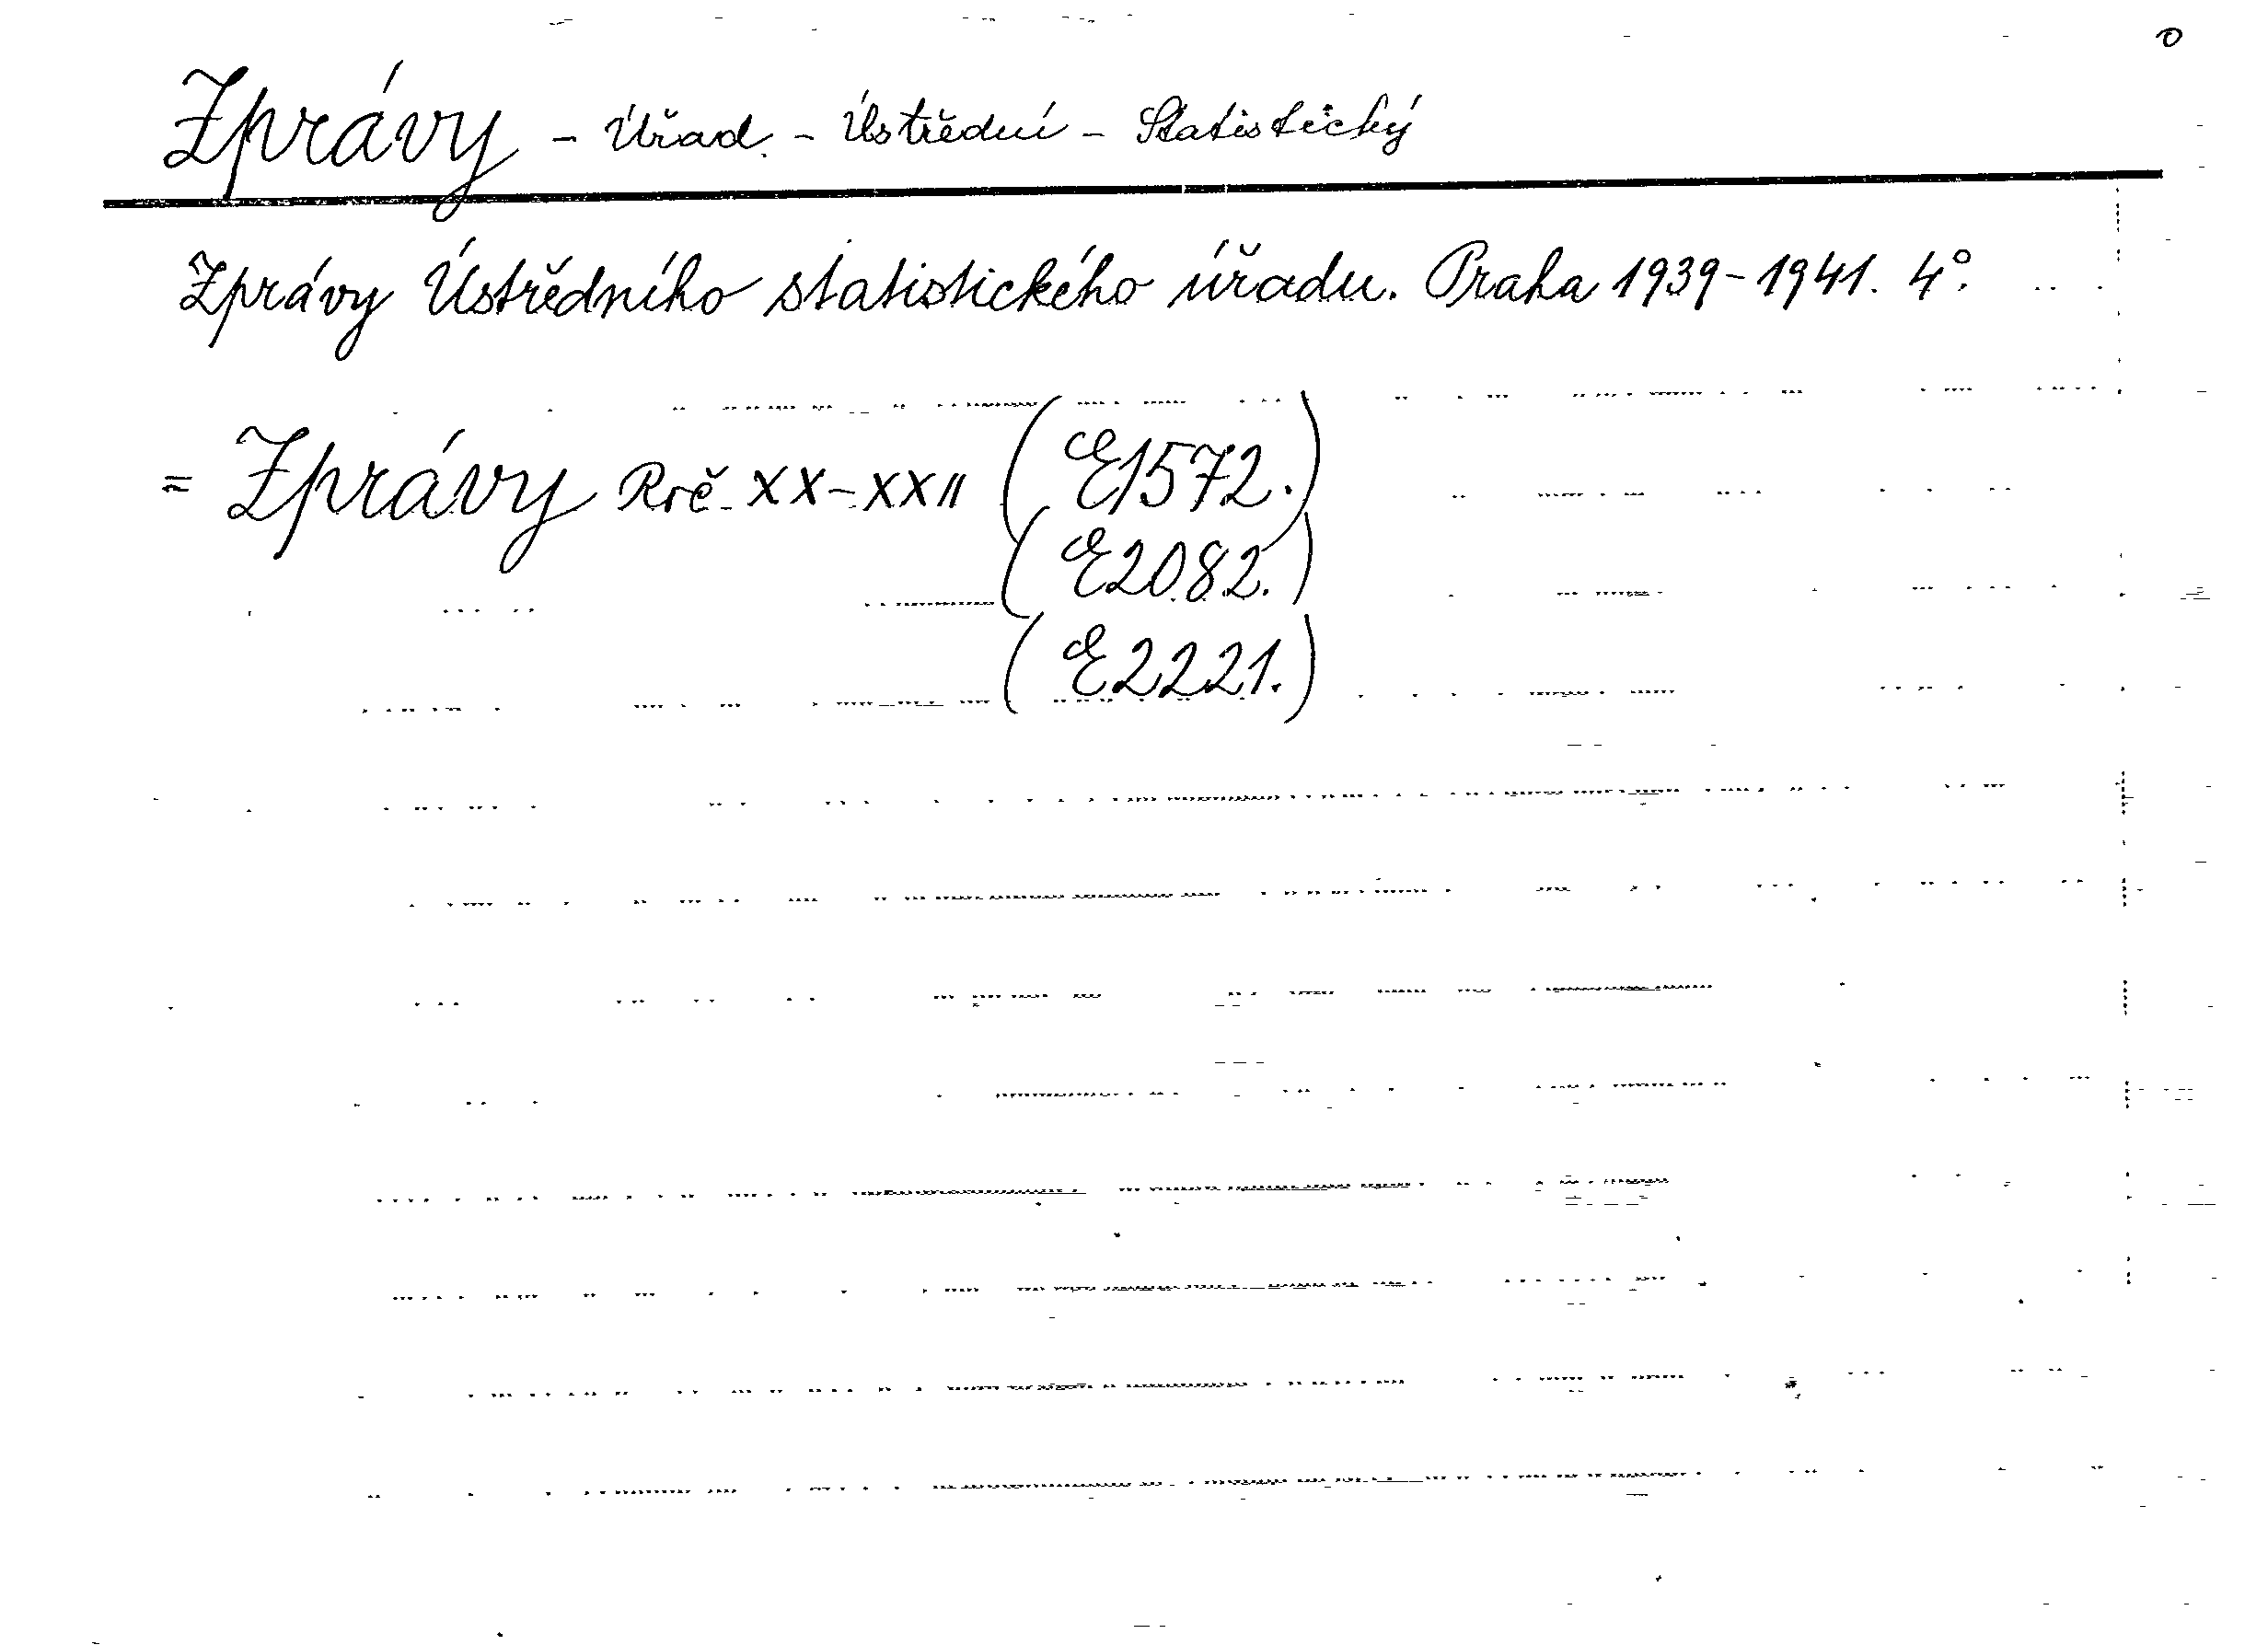 o
Zprávy - Úřad - Ústřední - Statistický
Zprávy Ústředního statistického úřadu. Praha 1939-1941. 4°.
= Zprávy Roč. XX-XXII (E1572.)
(E2082.)
(E2221.)